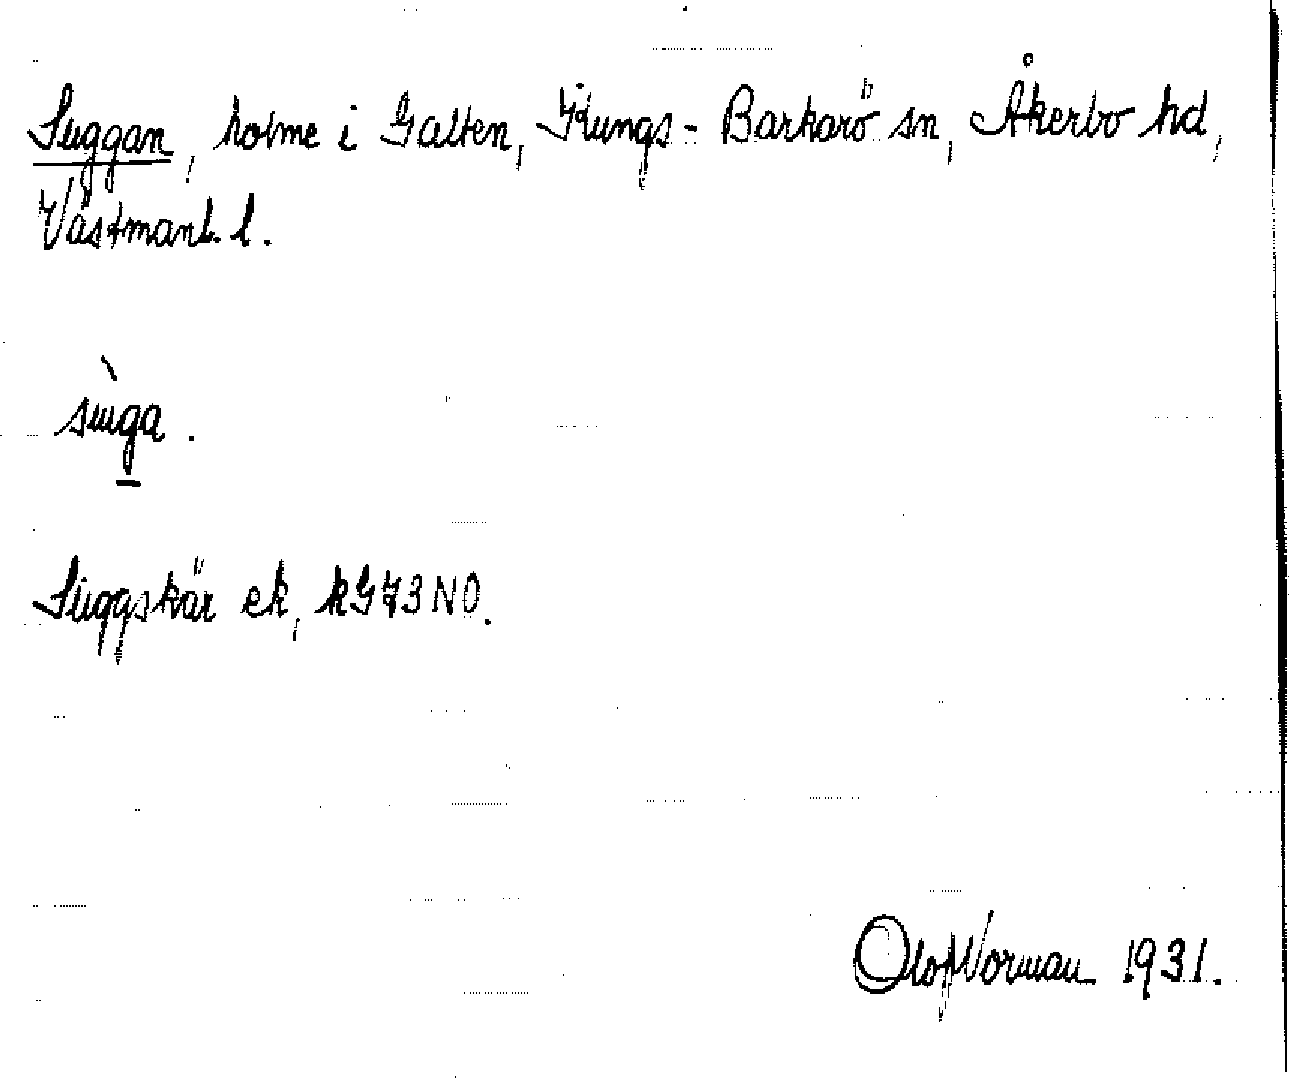 Suggan, holme i Galten, Kungs-Barkarö sn, Åkerbo hd,
Västmanl. l.
sùga.
Suggskär ek, kG73NO.
Olof Norman 1931.